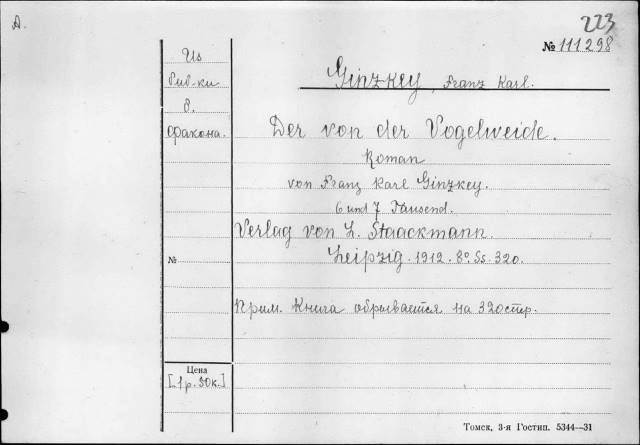 А.
223
№ 111298
Из
биб-ки
б.
Фракона.
Ginzkey, Franz Karl.
Der von der Vogelweide.
Roman
von Franz Karl Ginzkey.
6 und 7 Tausend.
Verlag von L. Staackmann.
Leipzig. 1912. 8° Ss. 320.
№
Прим. Книга обрывается на 320 стр.
Цена
[1 р. 30 к.]
Томск, 3-я Гостип. 5344—31